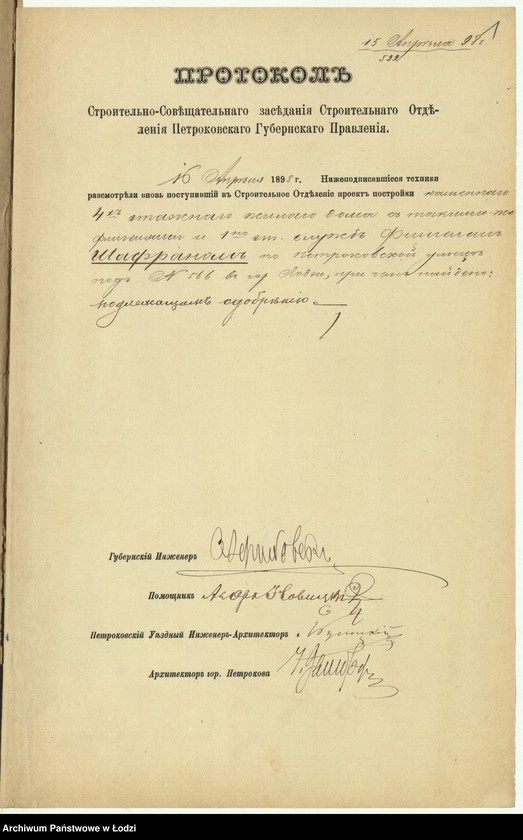 15 Апрѣля 98 г.
522
ПРОТОКОЛЪ
Строительно-Совѣщательнаго засѣданія Строительнаго Отдѣ-
ленія Петроковскаго Губернскаго Правленія.
16 Апрѣля 1898 г. Нижеподписавшіеся техники
разсмотрѣли вновь поступившій въ Строительное Отдѣленіе проэктъ постройки каменнаго
4ех этажнаго жилого дома съ такими-же
флигелями и 1но эт. службъ
Шафраномъ по петроковской улицѣ
подъ N 566 въ гор Лодзи, при чемъ найдено:
подлежащимъ одобрѣнію.
Губернскій Инженеръ
Помощникъ
Петроковскій Уѣздный Инженеръ-Архитекторъ
Архитекторъ гор. Петрокова
Archiwum Państwowe w Łodzi